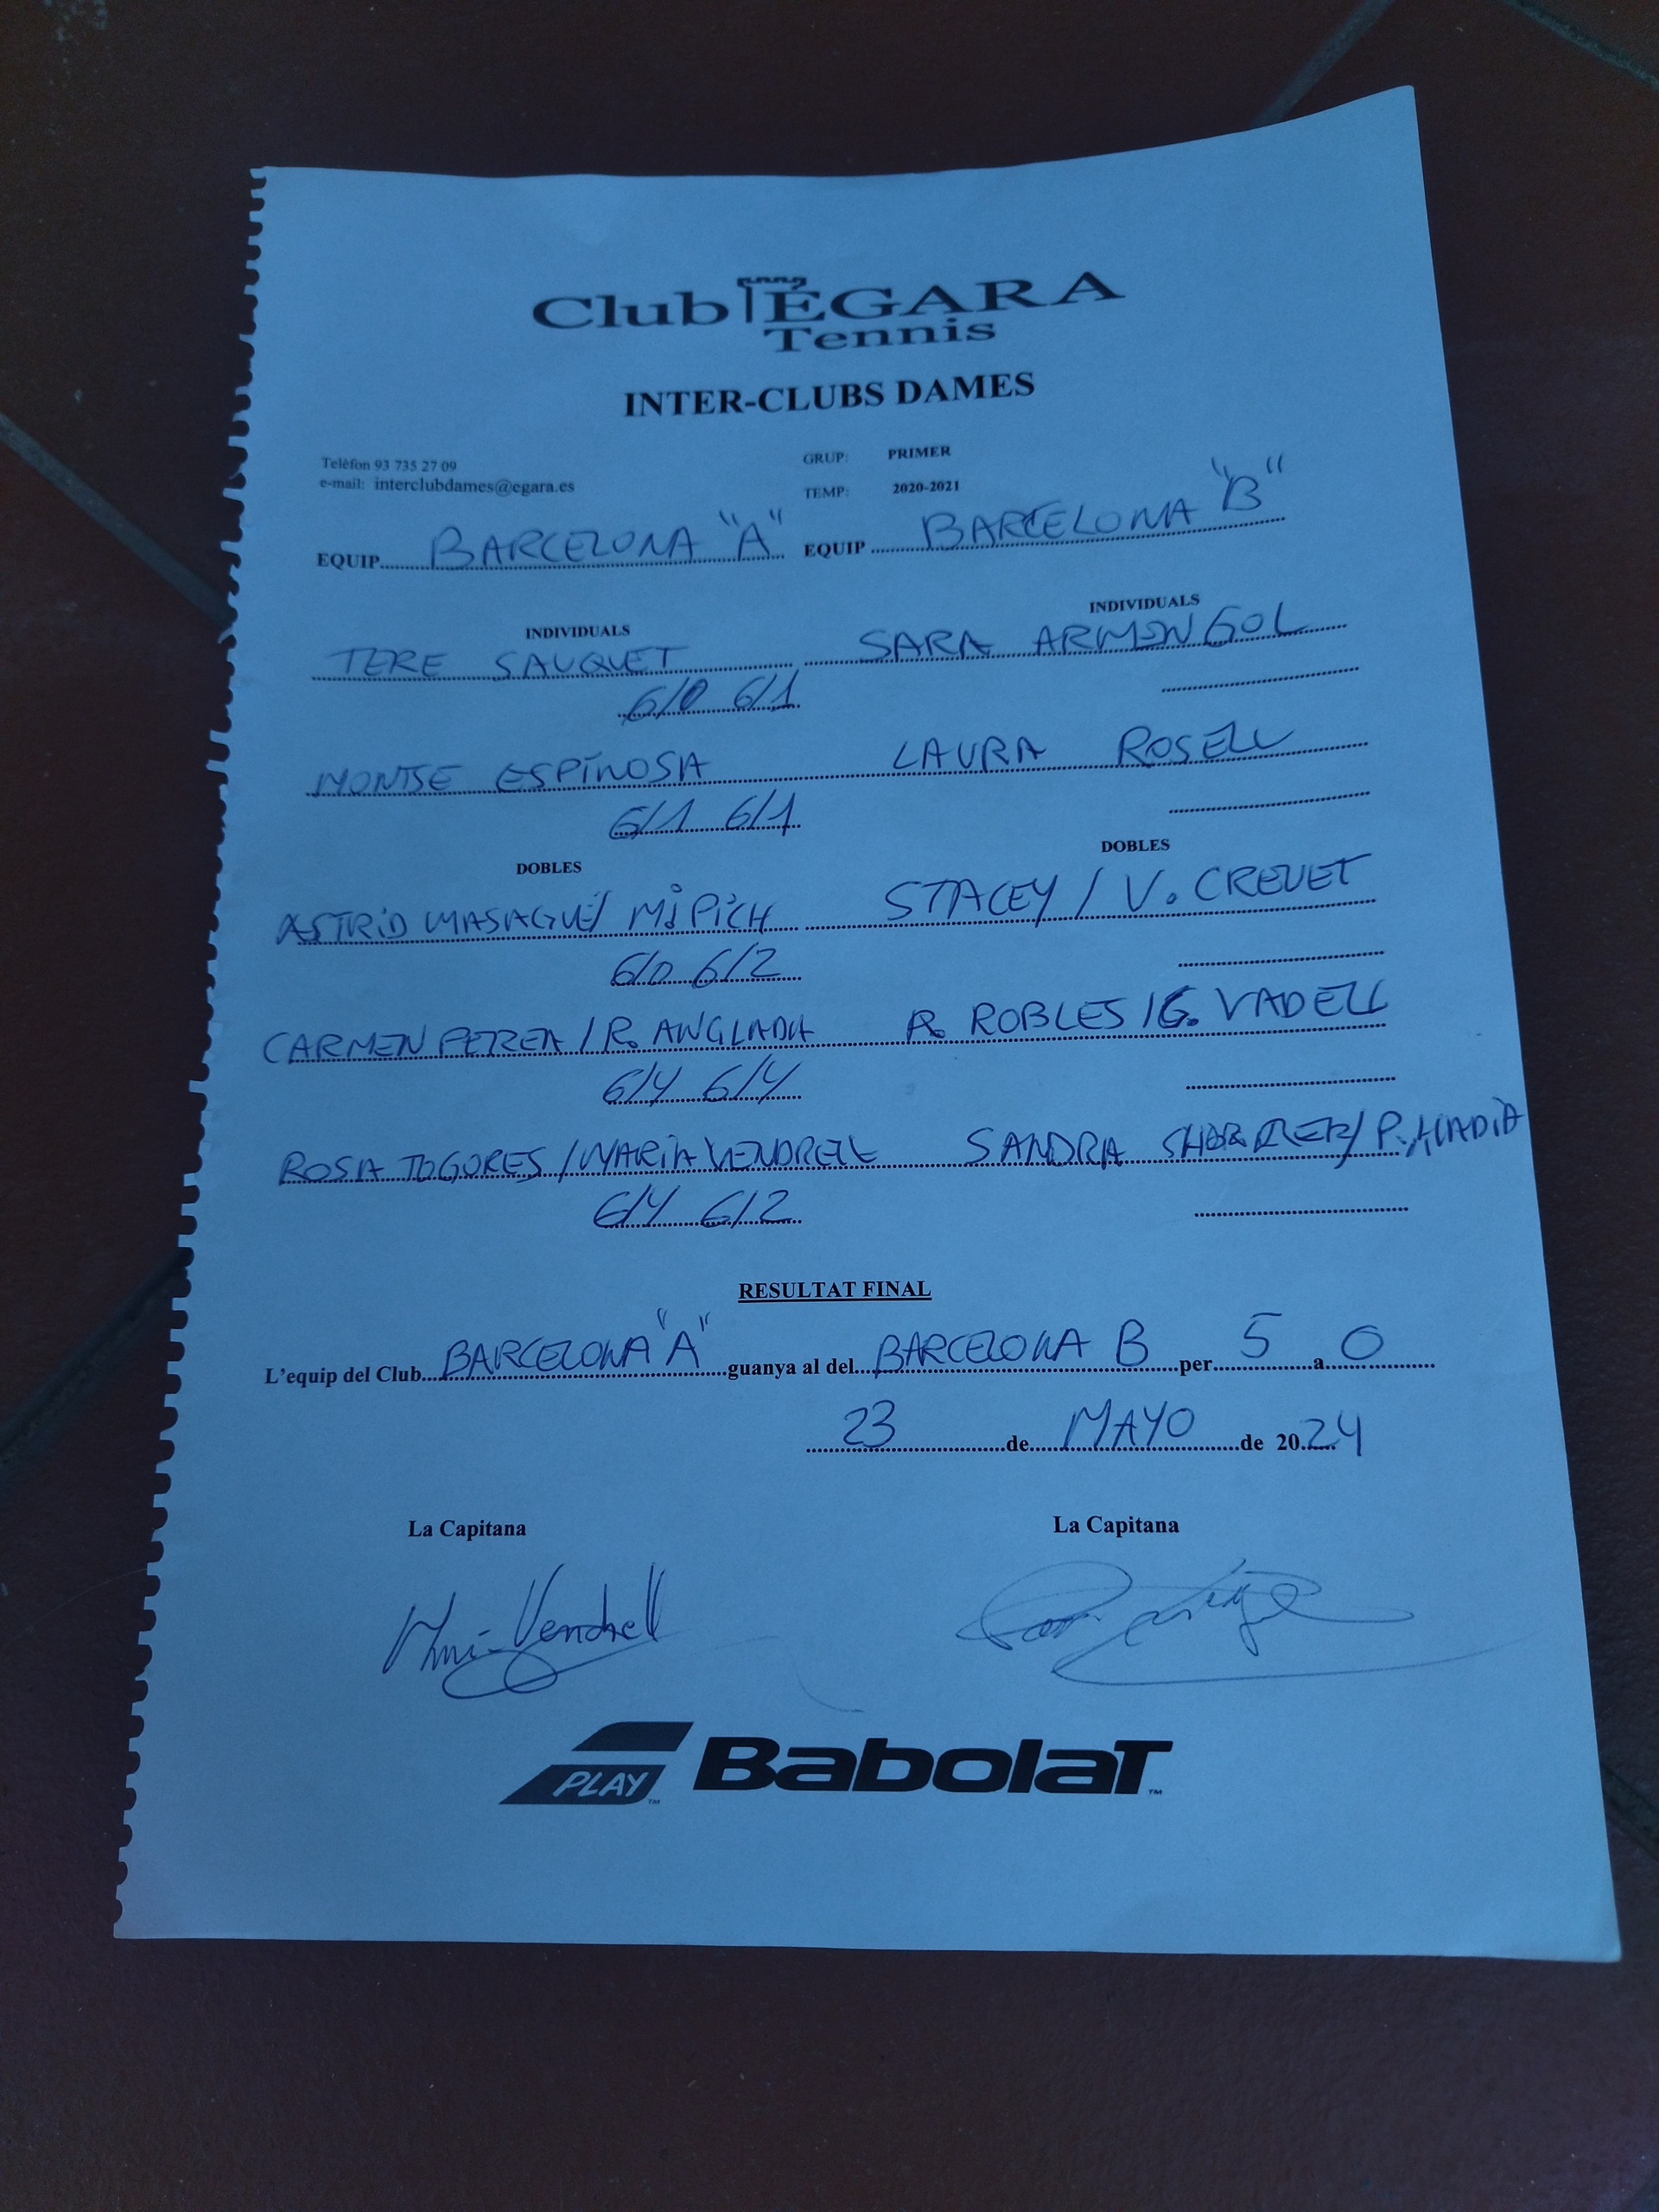 Club EGARA
Tennis
INTER-CLUBS DAMES
Telèfon 93 735 27 09 GRUP: PRIMER
e-mail: interclubdames@egara.es TEMP: 2020-2021
EQUIP BARCELONA "A" EQUIP BARCELONA "B"
INDIVIDUALS INDIVIDUALS
TERE SAUQUET SARA ARMENGOL
6/0 6/1
MONTSE ESPINOSA LAURA ROSELL
6/1 6/1
DOBLES DOBLES
ASTRID MASAGUÉ / Mj PICH STACEY / V. CREUET
6/0 6/2
CARMEN PEREA / R. ANGLADA R. ROBLES / G. VADELL
6/4 6/4
ROSA TOGORES / MARIA VENDRELL SANDRA
6/4 6/2
RESULTAT FINAL
L'equip del Club BARCELONA "A" guanya al del BARCELONA B per 5 a 0
23 de MAYO de 2024
La Capitana La Capitana
Vendrell
PLAY BABOLAT